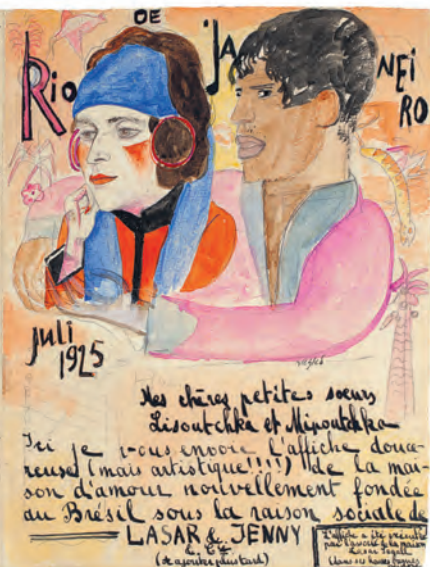 RIO DE JANEIRO
Juli
1925
Mes chères petites soeurs
Lisoutchka et Mipoutchka
Ici je vous envoie l'affiche douce-
reuse (mais artistique!!!!) de la mai-
son d'amour nouvellement fondée
au Brésil sous la raison sociale de
LASAR & JENNY
& Cie
(à ajouter plus tard)
L'affiche a été exécutée
par l'associé de la maison
Lasar Segall
dans ses heures